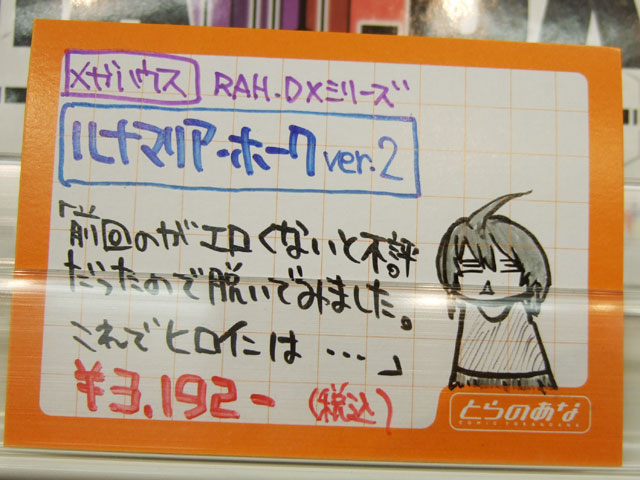 メガハウス RAH.DXシリーズ
ルナマリア・ホーク ver.2
「前回のがエロくないと不評
だったので脱いでみました。
これでヒロインは…」
¥3,192- (税込)
とらのあな
COMIC TORANOANA